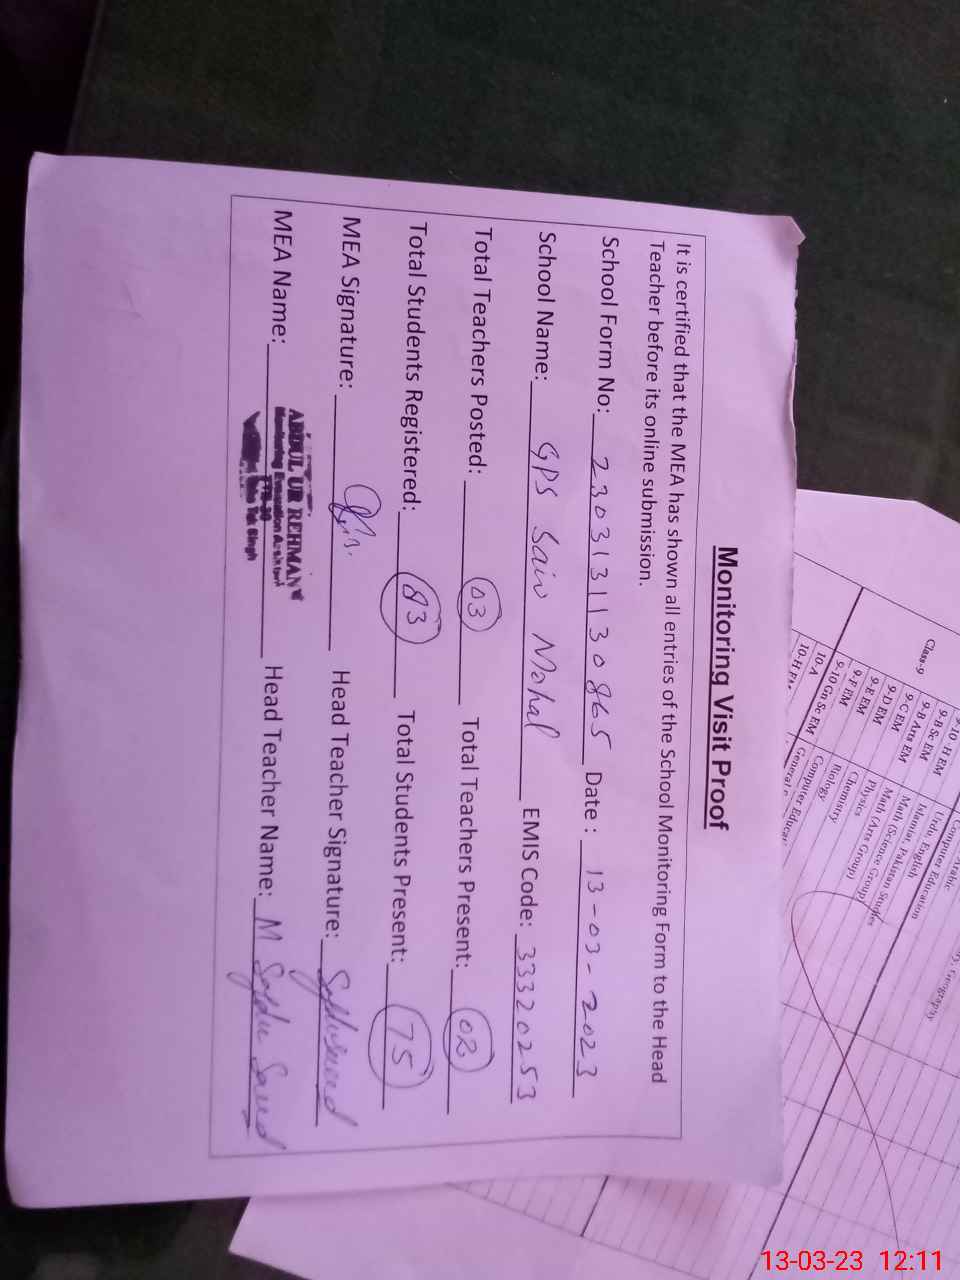 Monitoring Visit Proof
It is certified that the MEA has shown all entries of the School Monitoring Form to the Head
Teacher before its online submission.
School Form No: 2303131130865 Date : 13-03-2023
School Name: GPS Sain Mohal EMIS Code: 33320253
Total Teachers Posted: 03 Total Teachers Present: 02
Total Students Registered: 83 Total Students Present: 75
MEA Signature: Head Teacher Signature:
MEA Name: ABDUL UR REHMAN Head Teacher Name: M
Monitoring Evaluation Assistant
Tek Singh
Class-9
9-10 -H EM
9-B Sc EM
9-B Arts EM
9-C EM
9-D EM
9-E EM
9-F EM
9-10 Gn Sc EM
10-A
10-H EM
Urdu, English
Computer Education
Islamiat, Pakistan Studies
Math (Science Group)
Math (Arts Group)
Physics
Chemistry
Biology
Computer
Computer Educat
General
Geography
13-03-23 12:11